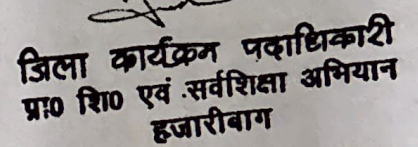 जिला कार्यक्रम पदाधिकारी
प्रा0 शि0 एवं सर्वशिक्षा अभियान
हजारीबाग